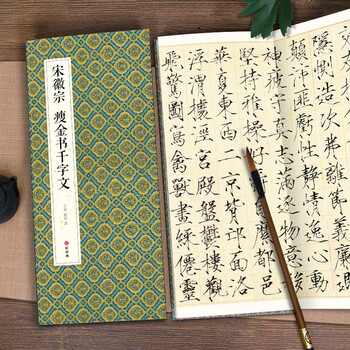 宋徽宗 瘦金书千字文
隱惻造次弗離節義廉退
顛沛匪虧性靜情逸心動
神疲守真志滿逐物意移
堅持雅操好
華夏東西二京背邙面洛
浮渭據涇宮殿盤鬱樓觀
飛驚圖寫禽獸畫綵僊靈